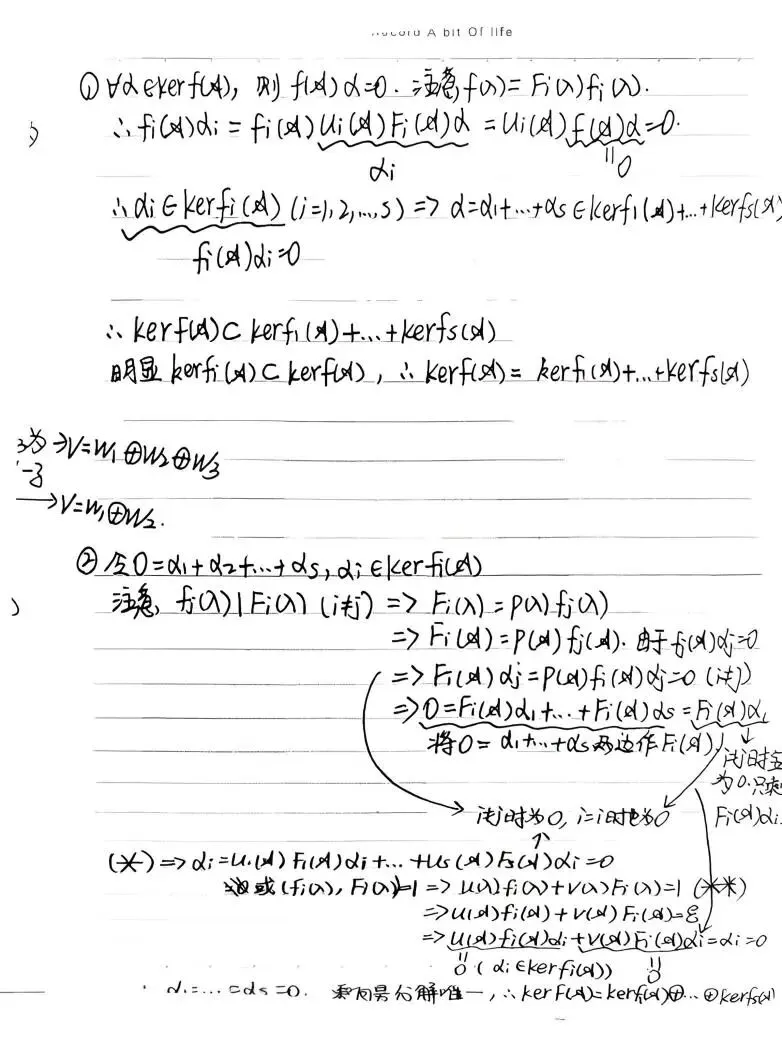 Record A bit Of life
① ∀α∈kerf(𝒜), 则 f(𝒜)α=0. 注意, f(λ)=Fi(λ)fi(λ).
∴ fi(𝒜)αi = fi(𝒜)ui(𝒜)Fi(𝒜)α = ui(𝒜)f(𝒜)α=0.
αi
||
0
∴ αi∈kerfi(𝒜) (i=1,2,...,s) => α=α1+...+αs∈kerf1(𝒜)+...+kerfs(𝒜)
fi(𝒜)αi=0
∴ kerf(𝒜)⊂kerf1(𝒜)+...+kerfs(𝒜)
明显 kerfi(𝒜)⊂kerf(𝒜), ∴ kerf(𝒜)= kerf1(𝒜)+...+kerfs(𝒜)
为→V=W1⊕W2⊕W3
→V=W1⊕W2.
② 令0=α1+α2+...+αs, αi∈kerfi(𝒜)
注意, fj(λ)|Fi(λ) (i≠j) => Fi(λ)=p(λ)fj(λ)
=> Fi(𝒜)=p(𝒜)fj(𝒜). 由于fj(𝒜)αj=0
=> Fi(𝒜)αj=p(𝒜)fj(𝒜)αj=0 (i≠j)
=> 0=Fi(𝒜)α1+...+Fi(𝒜)αs=Fi(𝒜)αi
将0=α1+...+αs两边作Fi(𝒜)
i≠j时全
为0.只剩
Fi(𝒜)αi.
i≠j时为0, i=j时也为0
(*) => αi=u1(𝒜)F1(𝒜)αi+...+us(𝒜)Fs(𝒜)αi=0
或(fi(λ), Fi(λ))=1 => u(λ)fi(λ)+v(λ)Fi(λ)=1 (**)
=> u(𝒜)fi(𝒜)+v(𝒜)Fi(𝒜)=ε
=> u(𝒜)fi(𝒜)αi+v(𝒜)Fi(𝒜)αi=αi=0
|| ||
0 (αi∈kerfi(𝒜)) 0
α1=...=αs=0. 零向量分解唯一, ∴ kerf(𝒜)=kerf1(𝒜)⊕...⊕kerfs(𝒜)